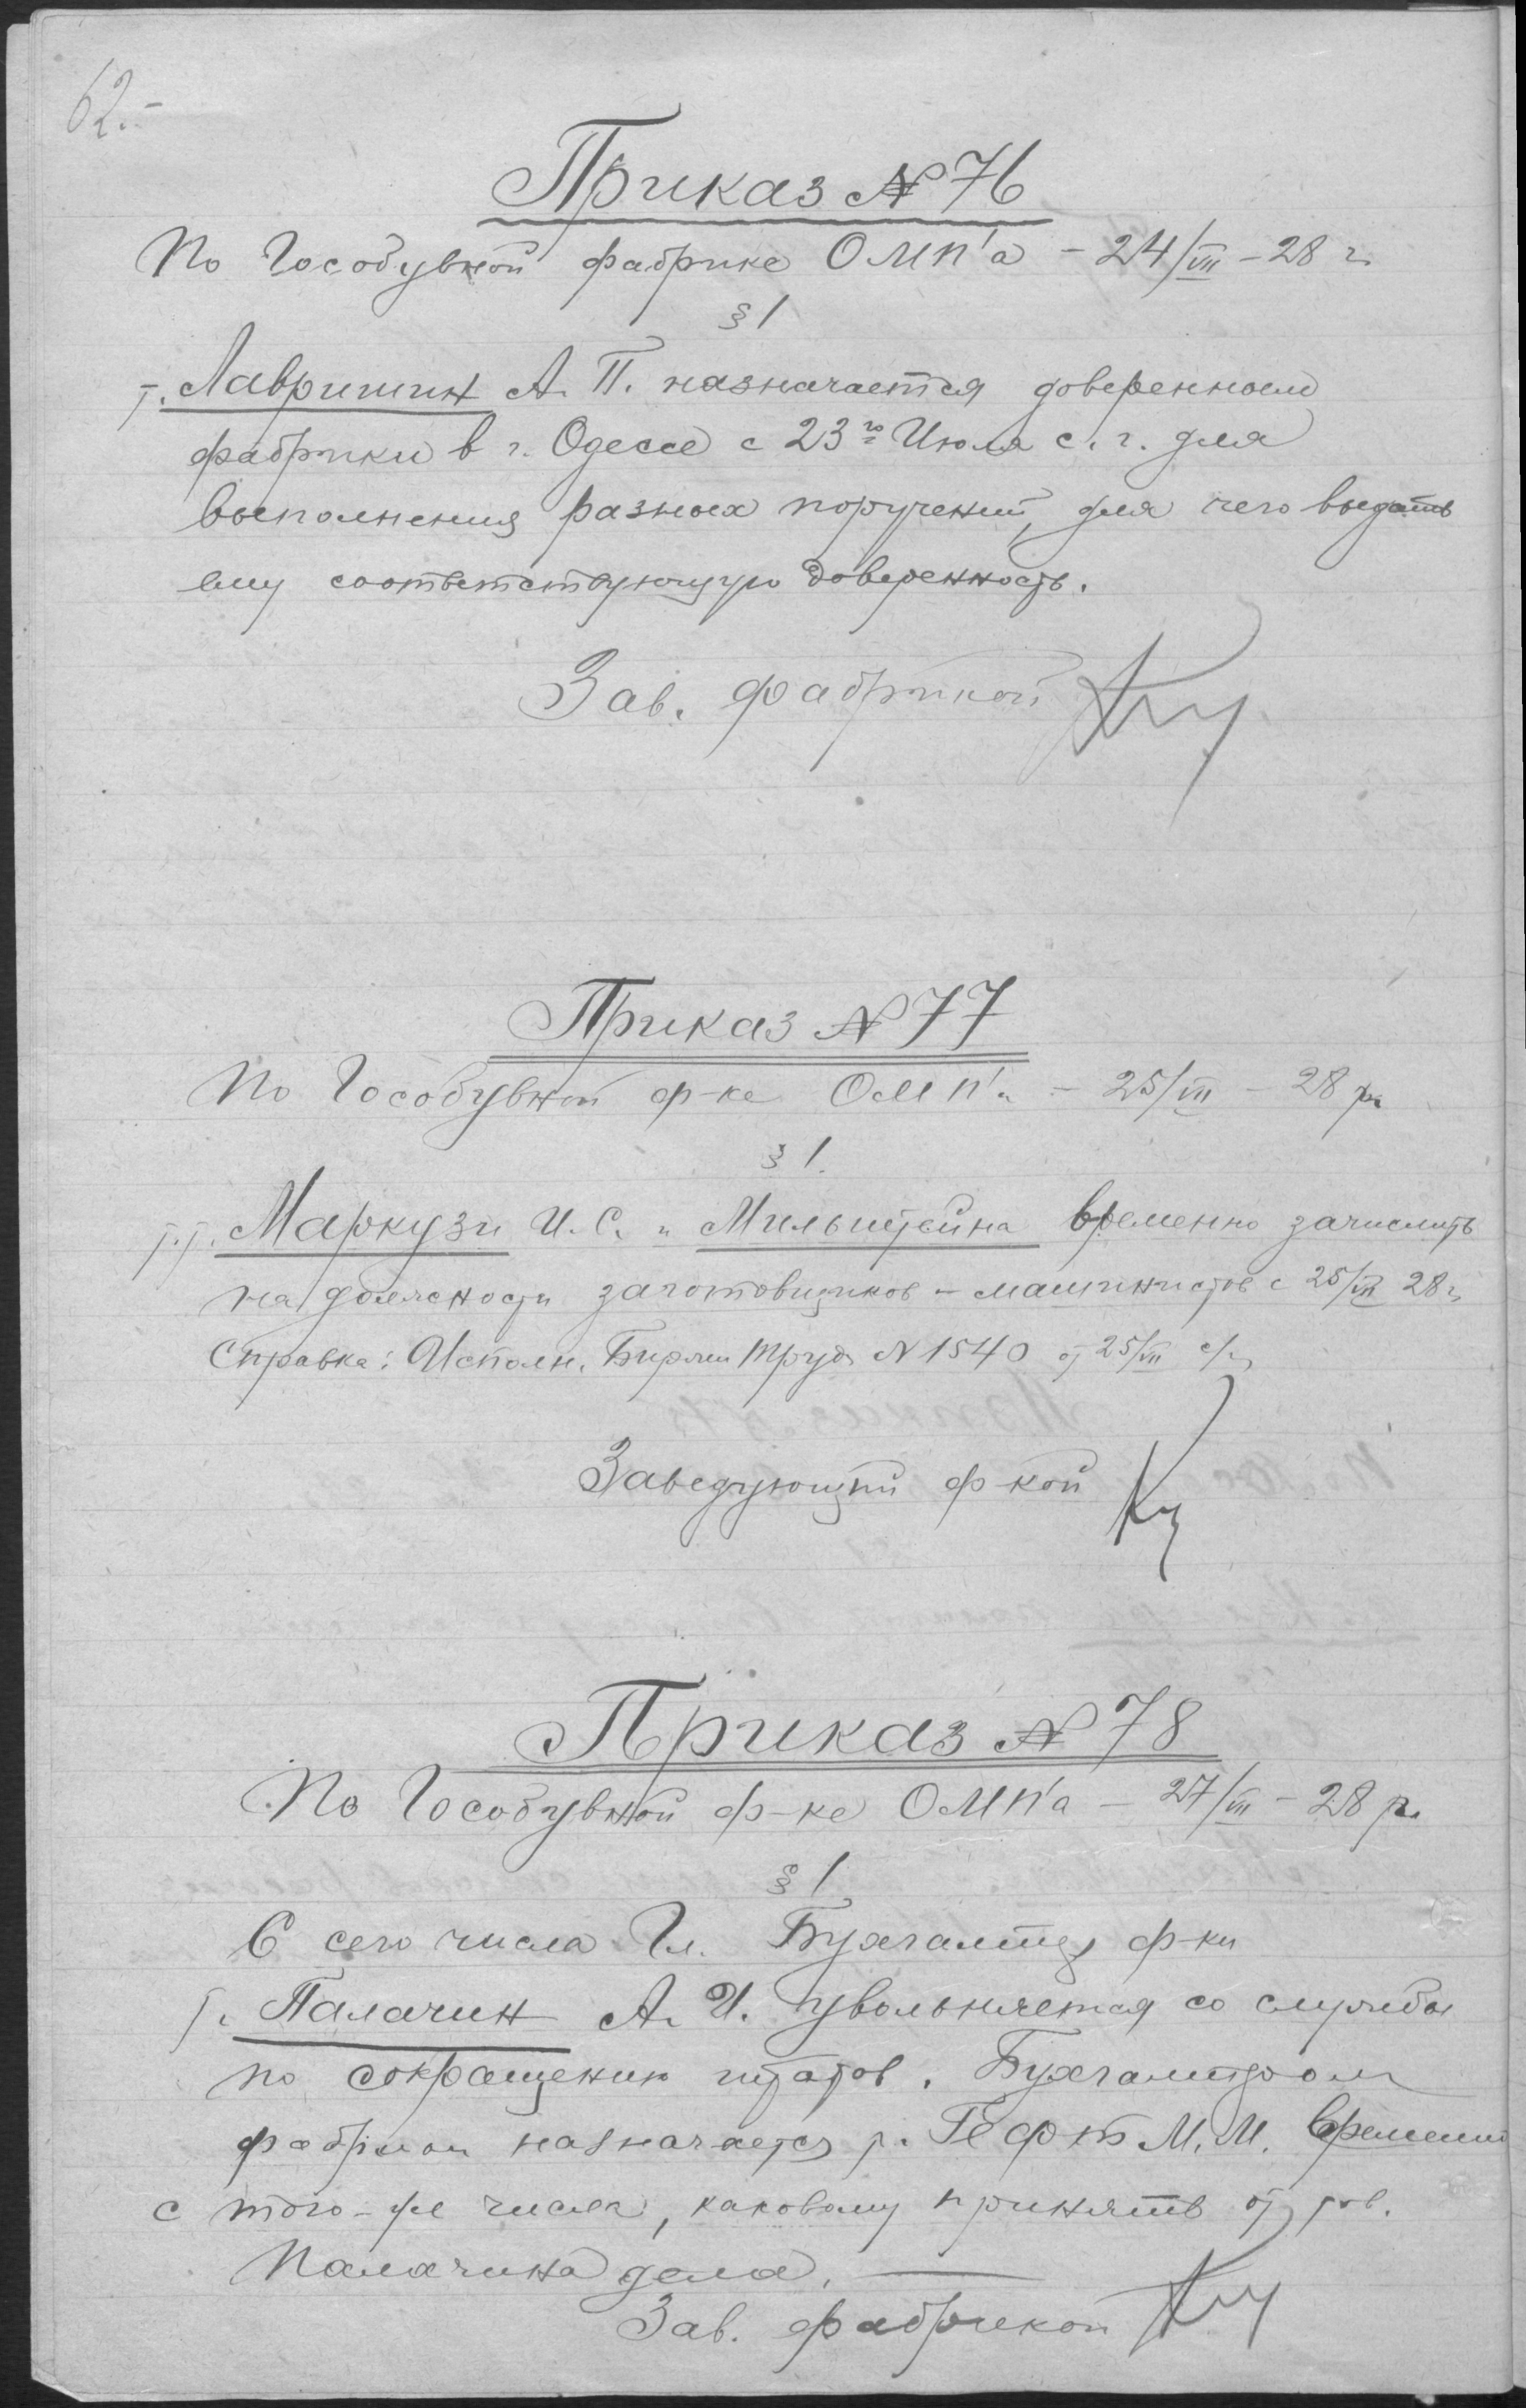 62.-
Приказ № 76
По Гособувной фабрике ОМП'а - 24/VII - 28 г.
§ 1
т. Лавришин А. П. назначается доверенным
фабрики в г. Одессе с 23го Июля с. г. для
выполнения разных поручений, для чего выдать
ему соответствующую доверенность.
Зав. фабрикой
Приказ № 77
По Гособувной ф-ке ОМП'а - 25/VII - 28 г.
§ 1.
т.т. Маркузи И. С. и Мильштейна временно зачислить
на должности заготовщиков - машинистов с 25/VII 28 г.
Справка: Исполн. Биржи Труда № 1540 от 25/VII с/г.
Заведующий ф-кой
Приказ № 78
По Гособувной ф-ке ОМП'а - 27/VII - 28 г.
§ 1
С сего числа Гл. Бухгалтер ф-ки
т. Палачин А. И. увольняется со службы
по сокращению штатов. Бухгалтером
фабрики назначается т. Гефт М. М. временно
с того-же числа, каковому принять от тов.
Палачина дела. —
Зав. фабрикой